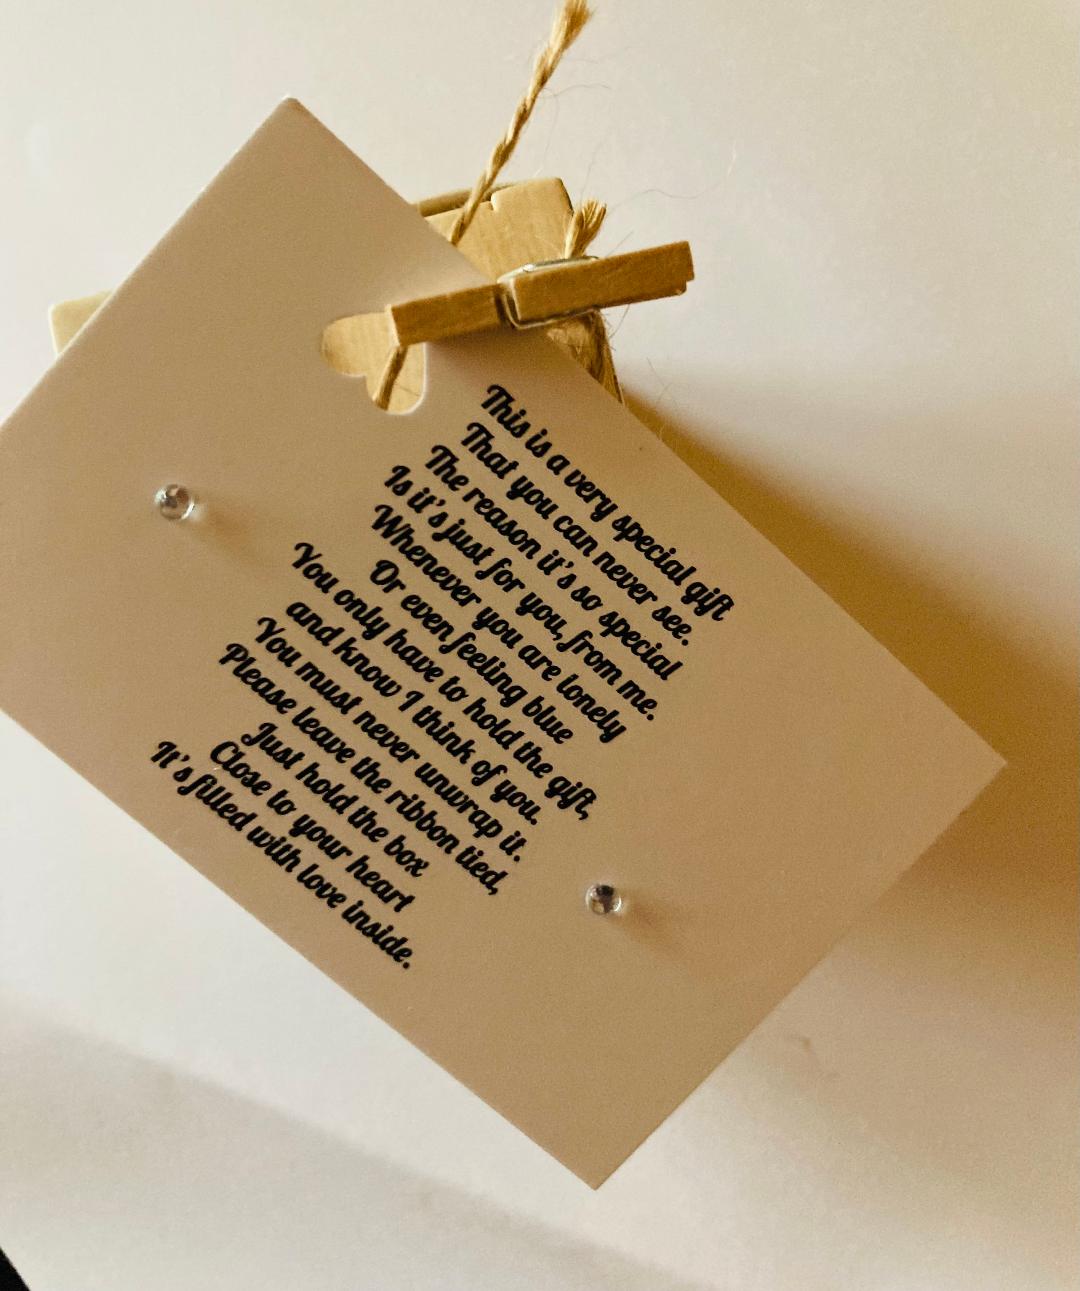 This is a very special gift
That you can never see.
The reason it's so special
Is it's just for you, from me.
Whenever you are lonely
Or even feeling blue
You only have to hold the gift,
and know I think of you.
You must never unwrap it.
Please leave the ribbon tied,
Just hold the box
Close to your heart
It's filled with love inside.